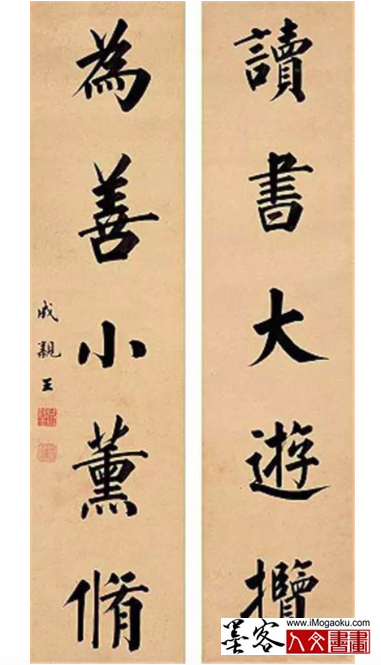 讀書大遊攬
為善小薰脩
成親王
墨客
www.iMogaoku.com
人文書畫